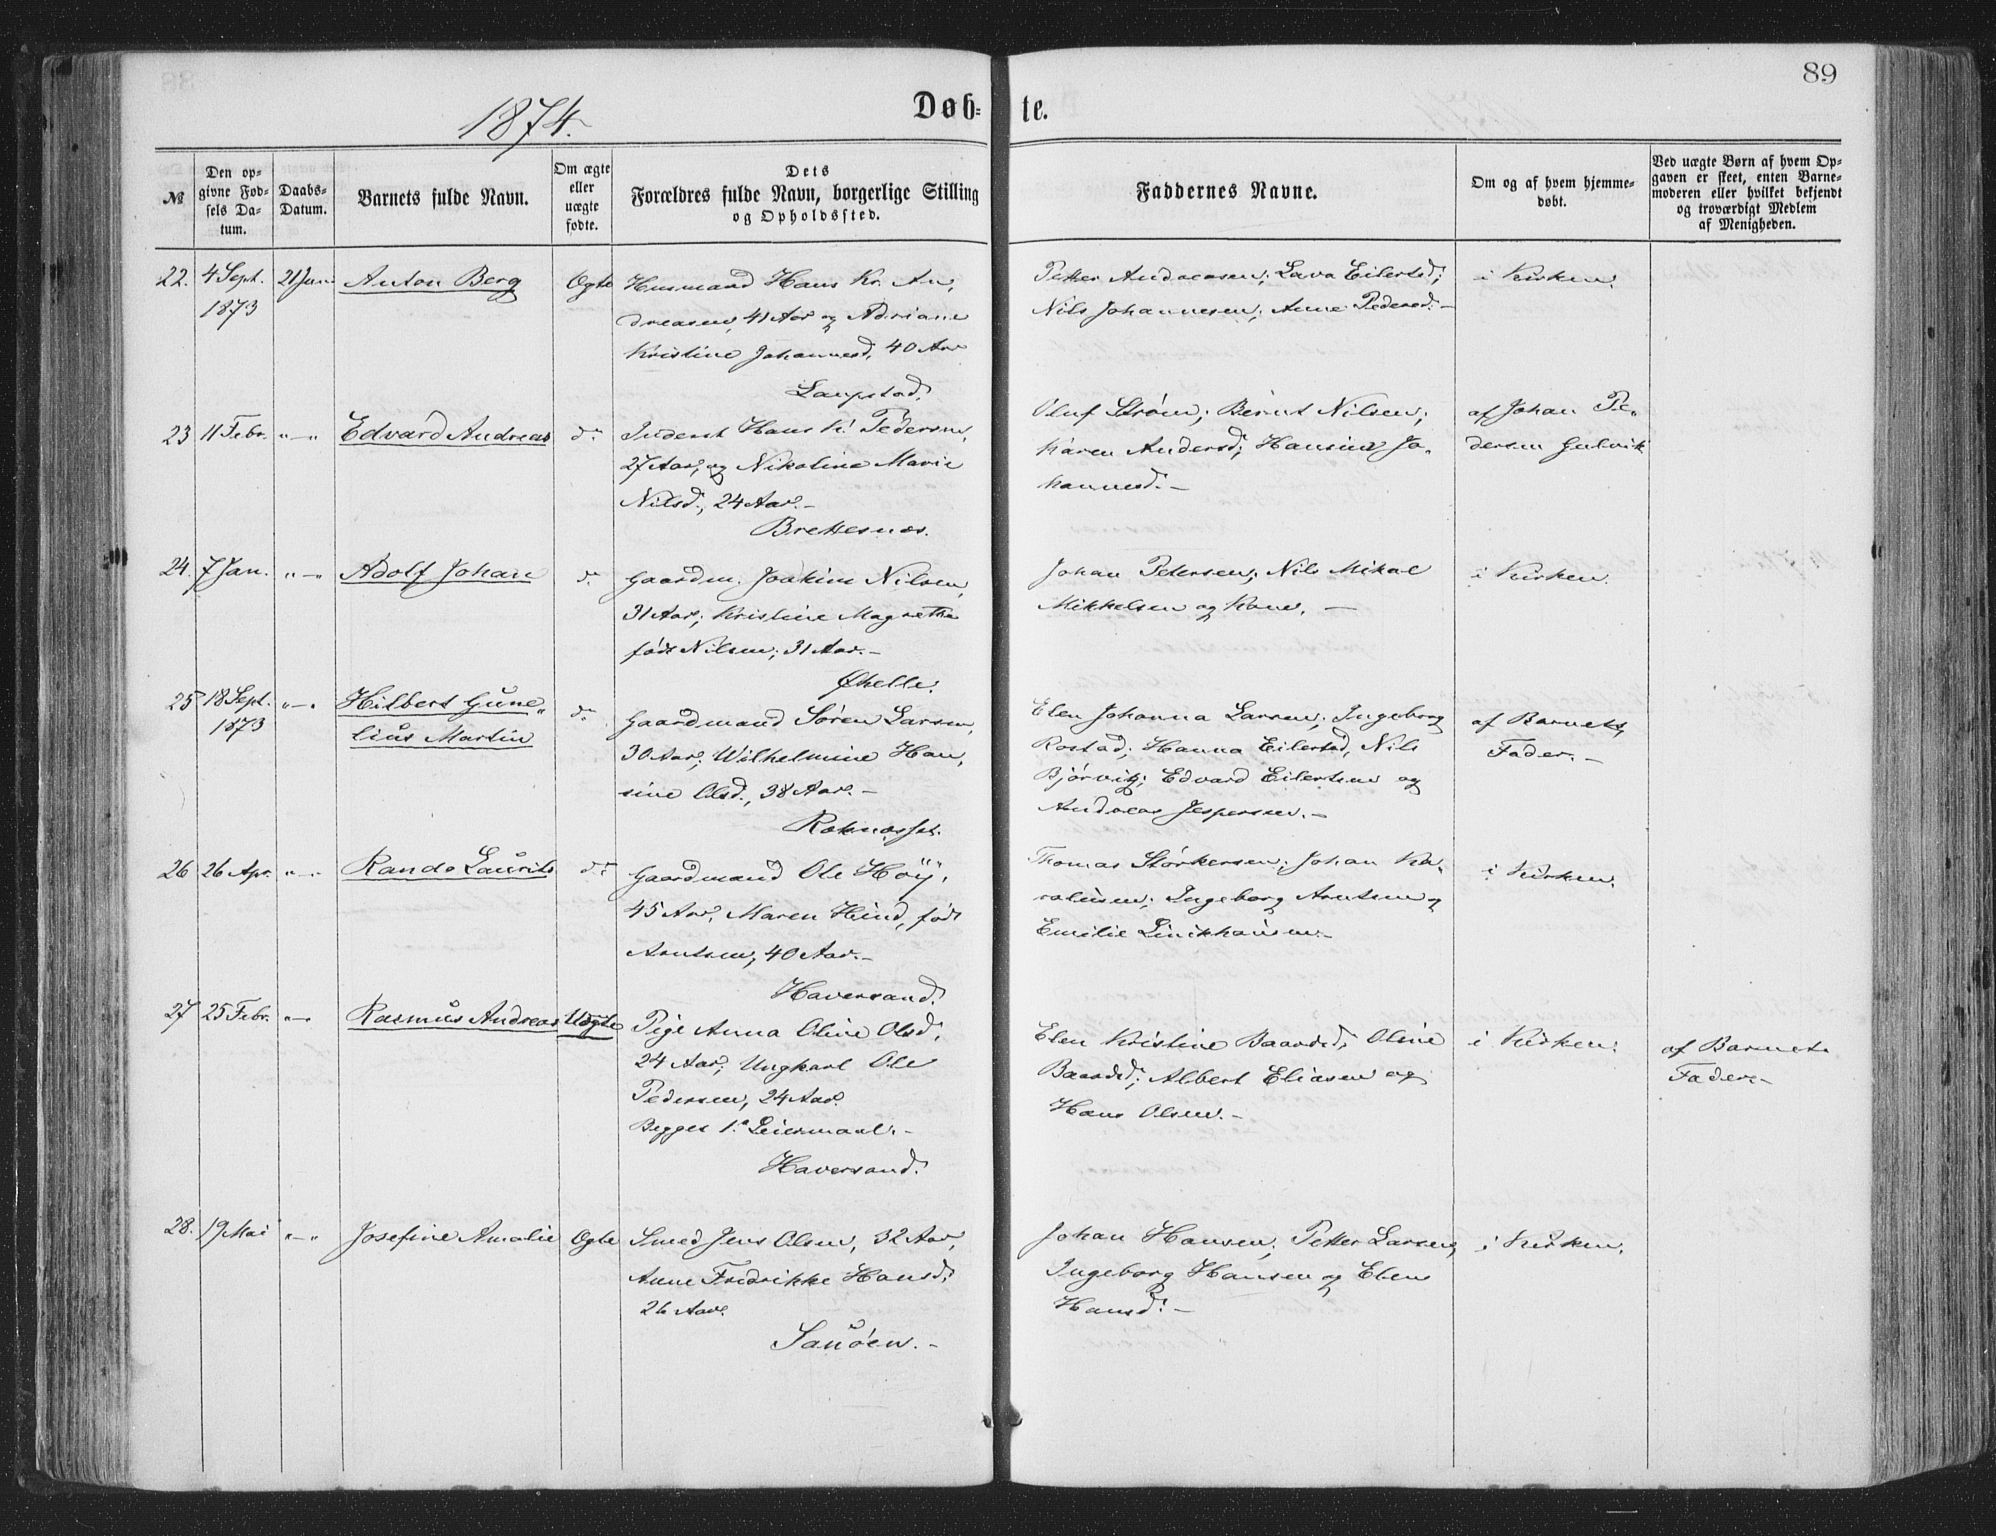 89
1874.
Døb-
te.
№
Den op-
givne Fød-
sels Da-
tum.
Daabs-
Datum.
Barnets fulde Navn.
Om ægte
eller
uægte
fødte.
Dets
Forældres fulde Navn, borgerlige Stilling
og Opholdssted.
Faddernes Navne.
Om og af hvem hjemme-
døbt.
Ved uægte Børn af hvem Op-
gaven er skeet, enten Barne-
moderen eller hvilket bekjendt
og troværdigt Medlem
af Menigheden.
22.
4 Sept.
1873
21 Juni
Anton Berg
Ægte
Husmand Hans Kr. An-
dreasen, 41 Aar og Adriane
Kristine Johannesd, 40 Aar
Langstad.
Petter Andreasen; Lava Eilertsd;
Nils Johannesen; Anne Pedersd. —
i Kirken.
23
11 Febr.
" — "
Edvard Andreas
do
Inderst Hans K. Pedersen,
27 Aar, og Nikoline Marie
Nilsd., 24 Aar. —
Brettesnæs.
Oluf Strøm; Bernt Nilsen;
Karen Andersd; Hansine Jo-
hannesd. —
af Johan Pe-
dersen Gulvik
24.
7 Jan.
" — "
Adolf Johan
do
Gaardm. Joakim Nilsen,
31 Aar; Kristine Magrethe
født Nilsen; 31 Aar. —
Øhelle.
Johan Petersen; Nils Mikal
Mikkelsen og Kone. —
i Kirken.
25
18 Sept.
1873
" — "
Hilbert Gune-
lius Martin
do
Gaardmand Søren Larsen,
30 Aar; Wilhelmine Han-
sine Olsd., 38 Aar. —
Elen Johanna Larsen; Ingeborg
Rostad; Hanna Eilertsd, Nils
Bjørvig; Edvard Eilertsen og
Andreas Jespersen. —
af Barnets
Fader. —
26
26 Apr.
" — "
Rando Laurits
do
Gaardmand Ole Höÿ,
45 Aar, Maren Hind, født
Arntsen, 40 Aar. —
Haversand.
Thomas Størkersen; Johan Ka-
rolusen; Ingeborg Arntsen og
Emilie Linckhausen. —
i Kirken.
27
25 Febr.
" — "
Rasmus Andreas
Uægte
Pige Anna Oline Olsd,
24 Aar; Ungkarl Ole
Pedersen, 24 Aar.
Begges 1.ste Leiermaal. —
Haversand.
Elen Kristine Baardsd; Oline
Baardsd; Albert Eliasen og
Hans Olsen. —
i Kirken.
af Barnets
Fader —
28.
19 Mai
" — "
Josefine Amalie
Ægte
Smed Jens Olsen, 32 Aar,
Anne Fredrikke Hansd,
26 Aar.
Sanöen. —
Johan Hansen; Petter Larsen,
Ingeborg Hansen og Elen
Hansd. —
i Kirken.